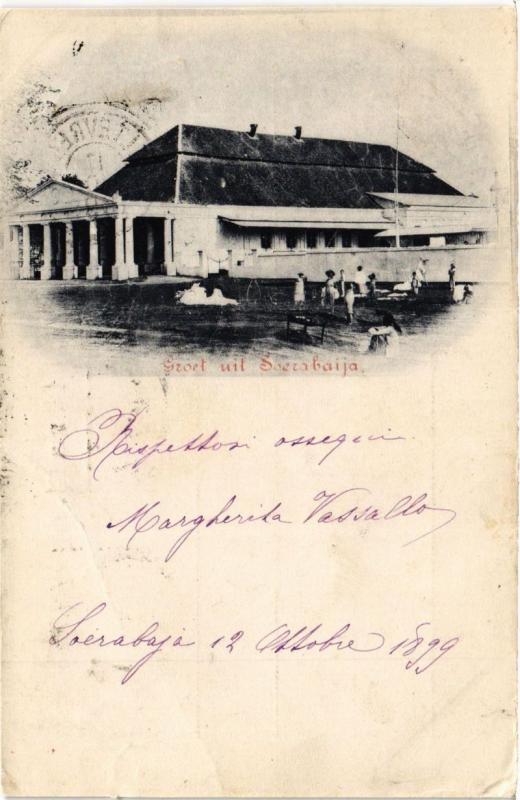 Groet uit Soerabaija.
Rispettosi ossequi
Margherita Vassallo
Soerabaja 12 Ottobre 1899